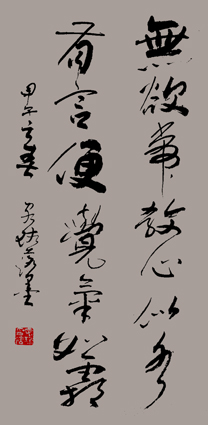 無欲常教心似水
有言便覺氣如霜
甲午春